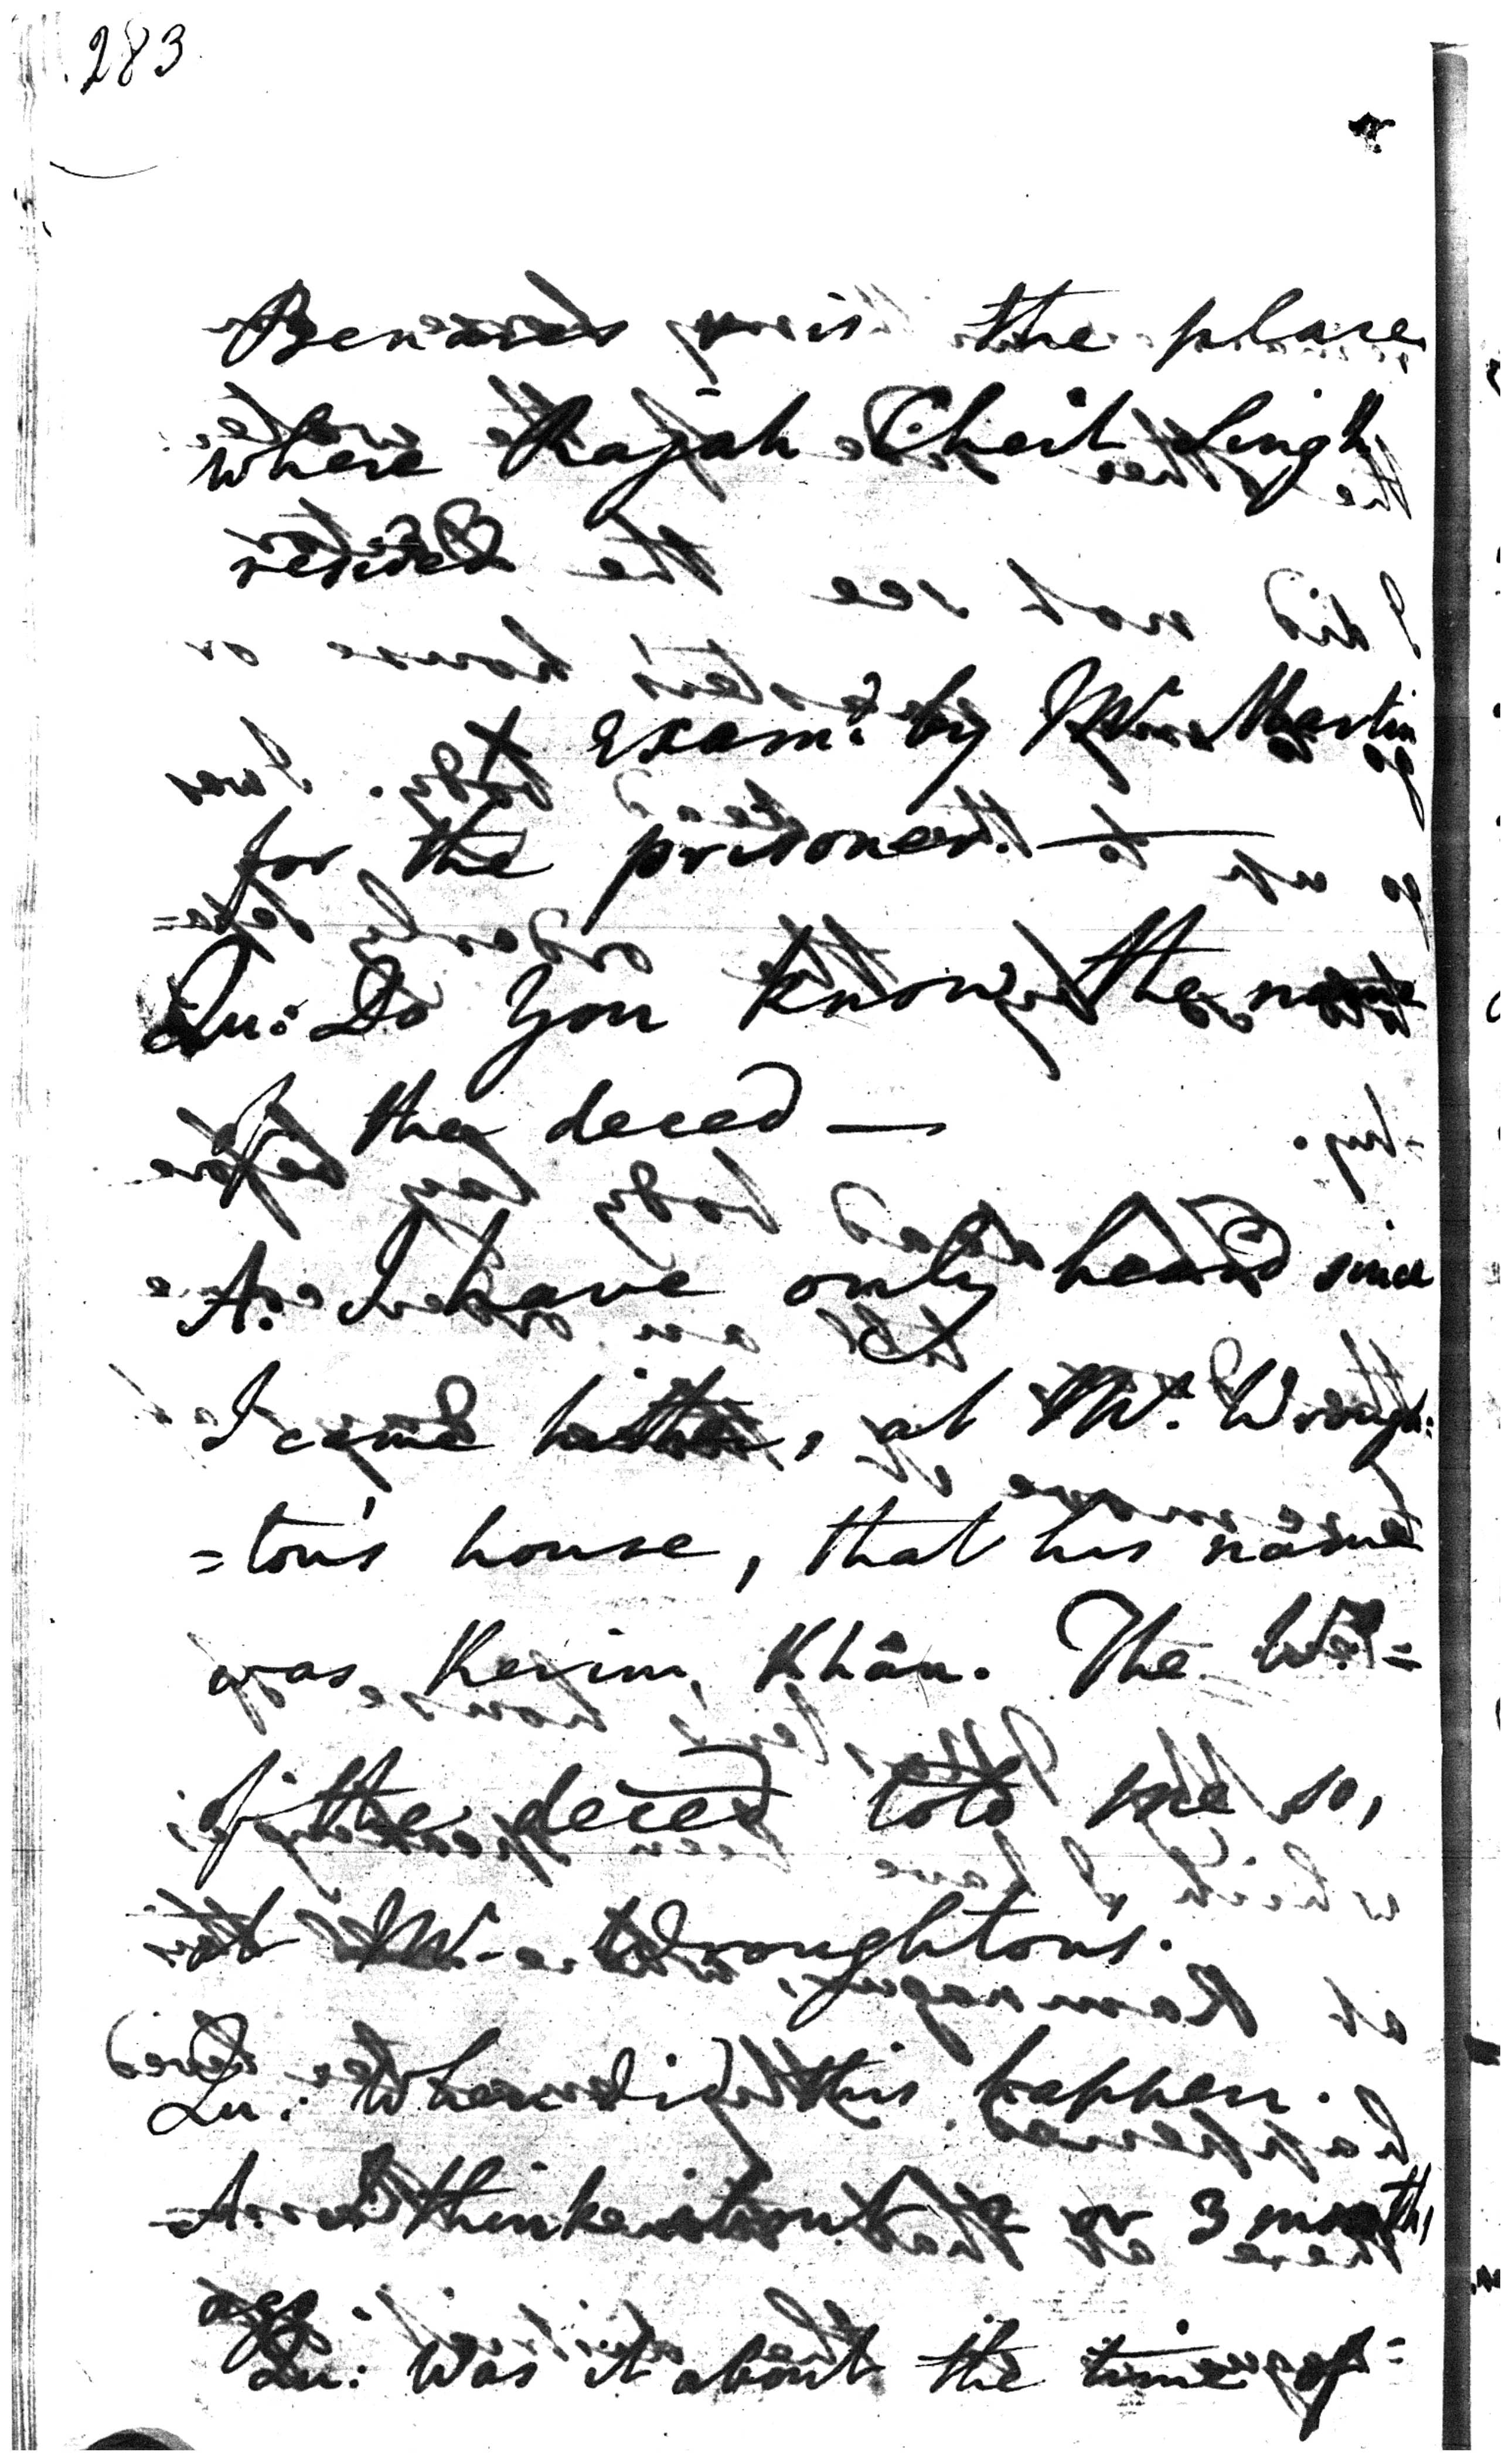 283
Benares is the place
where Rajah Cheit Singh
resided
X Exam.d by Mr Martin
for the prisoner. —
Qu: Do you know the name
of the deced —
A. I have only heard since
I came hither, at Mr. Wrough:
=ton's house, that his name
was Kerim Khân. The
of the deced told me so,
at Mr. Wroughton's.
Qu: When did this happen.
A. I think about 2 or 3 months
ago
Qu: Was it about the time of